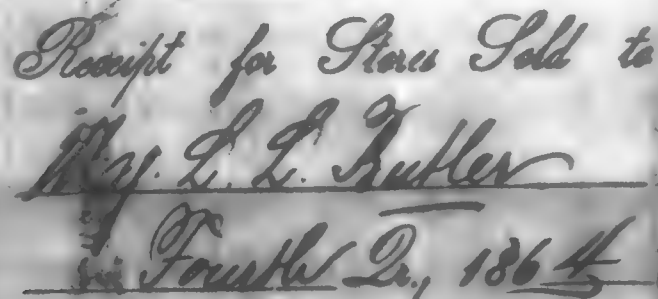 Receipt for Stores Sold to
L. L. Butler
Fourth Qr., 1864